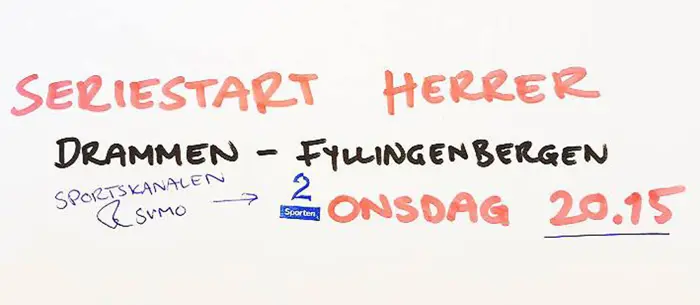 SERIESTART HERRER
DRAMMEN - FYLLINGENBERGEN
SPORTSKANALEN → 2
& SUMO Sporten ONSDAG 20.15